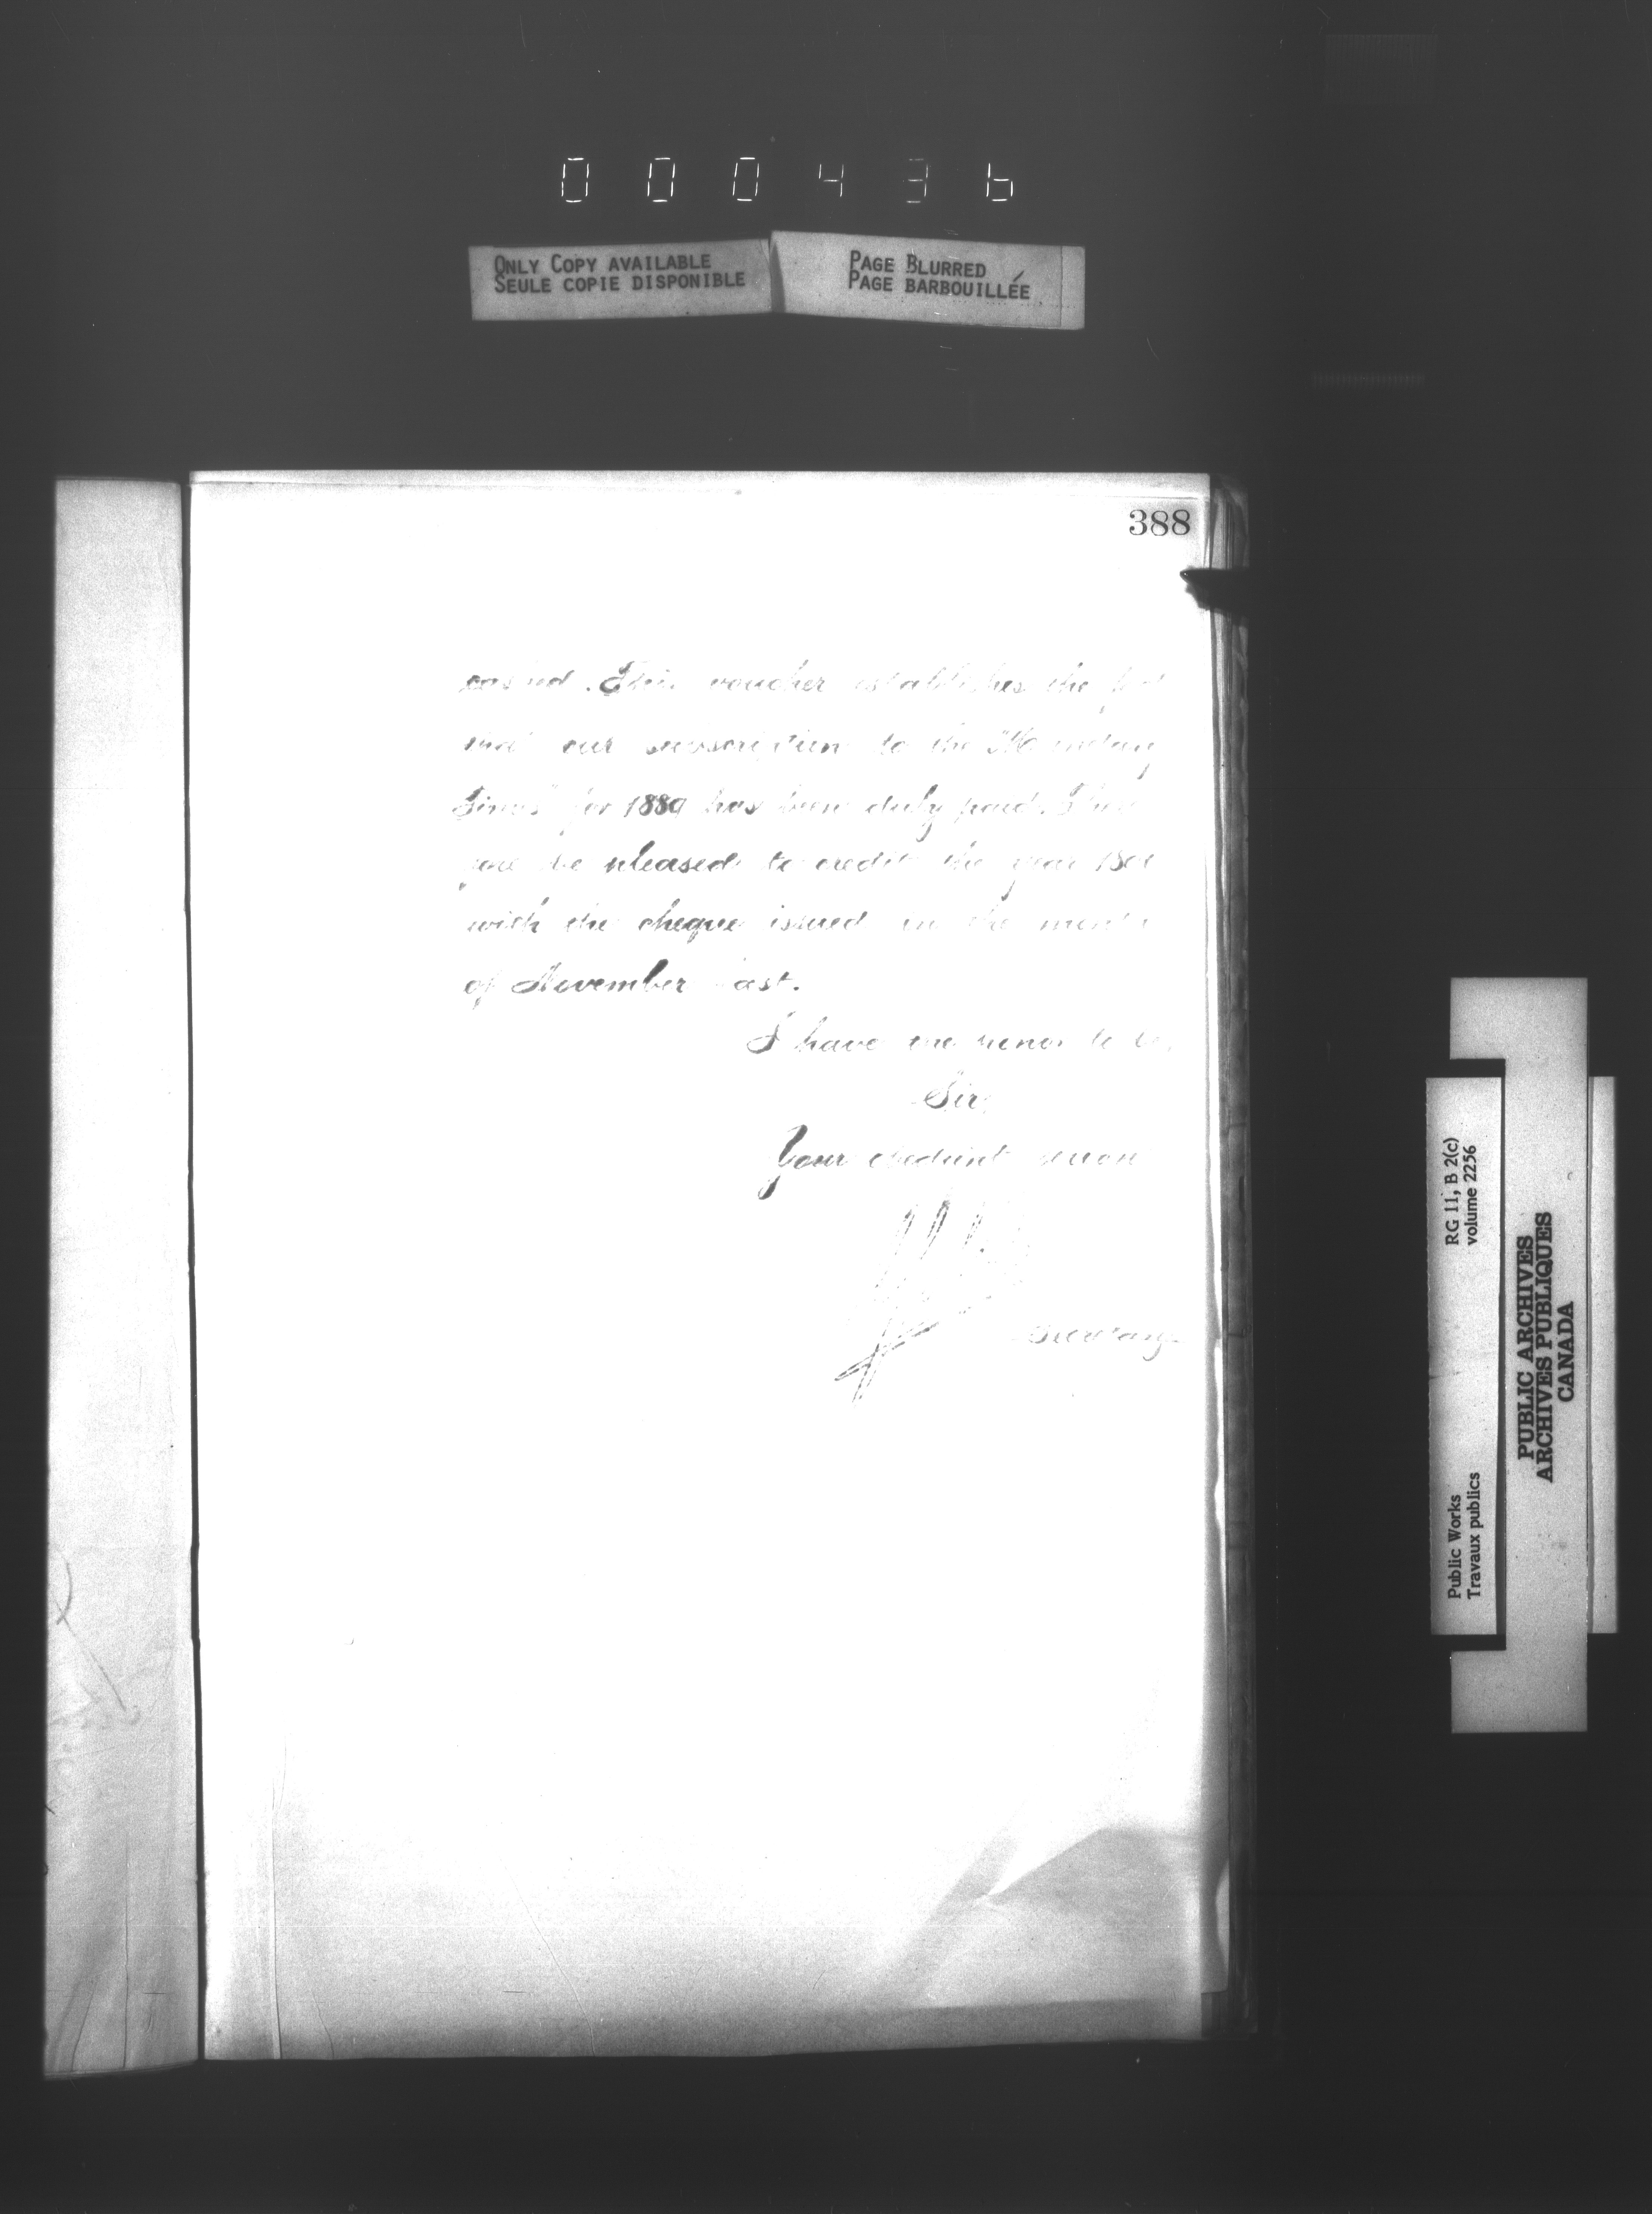 000436
ONLY COPY AVAILABLE
SEULE COPIE DISPONIBLE
PAGE BLURRED
PAGE BARBOUILLÉE
388
This voucher establishes the
that our subscription to the
Times" for 1889 has been duly paid.
you be pleased to credit the year
with the cheque issued in the month
of November last.
I have the honor to be,
Sir,
Your obedient
Secretary.
Public Works
Travaux publics
RG 11, B 2(c)
volume 2256
PUBLIC ARCHIVES
ARCHIVES PUBLIQUES
CANADA